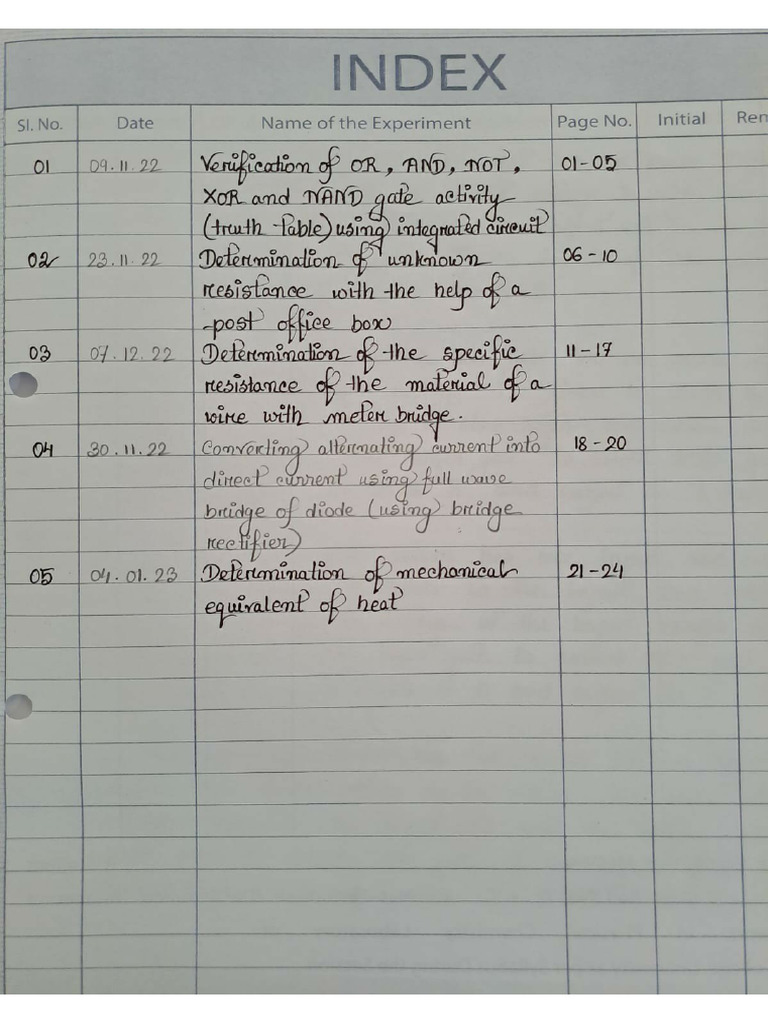 INDEX
Sl. No. Date Name of the Experiment Page No. Initial Rem
01 09.11.22 Verification of OR, AND, NOT, 01-05
XOR and NAND gate activity
(truth table) using integrated circuit
02 23.11.22 Determination of unknown 06-10
resistance with the help of a
post office box
03 07.12.22 Determination of the specific 11-17
resistance of the material of a
wire with meter bridge.
04 30.11.22 Converting alternating current into 18-20
direct current using full wave
bridge of diode (using bridge
rectifier)
05 04.01.23 Determination of mechanical 21-24
equivalent of heat